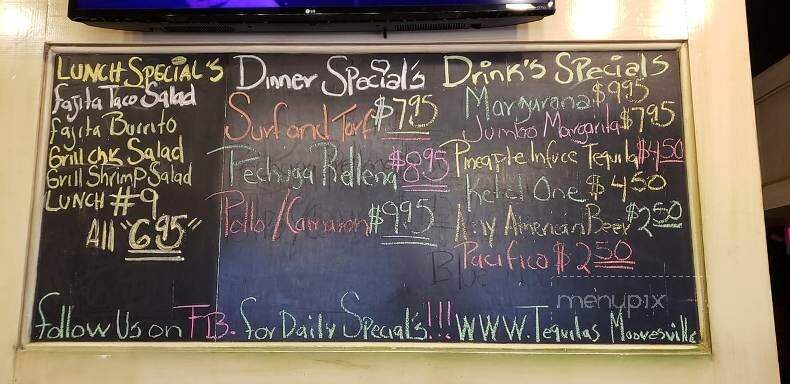 LG
LUNCH SPECIAL'S
fajita Taco Salad
fajita Burrito
Grill chk Salad
Grill Shrimp Salad
LUNCH #9
All "6.95"
Dinner Special's
Surf and Turf $7.95
Pechuga Rellena $8.95
Pollo/Camaron $9.95
Drink's Specials
Margarona $9.95
Jumbo Margarita $7.95
Pineaple Infuce Tequila $4.50
Ketel One $4.50
Any American Beer $2.50
Pacifico $2.50
menupix
follow Us on FB. for Daily Special's!!! WWW.Tequilas Mooresville